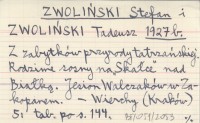 ZWOLIŃSKI Stefan i
ZWOLIŃSKI Tadeusz 1927 b.
Z zabytków przyrody tatrzańskiej.
Rodzime sosny na „Skałce" nad
Białką. Jesion Walczaków w Za-
kopanem. – Wierchy (Kraków)
5: tabl. po s. 144.